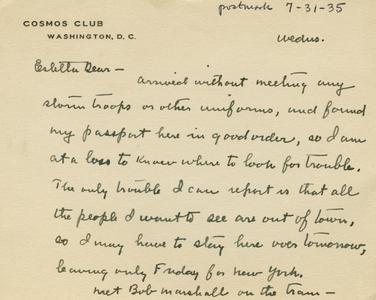 postmark 7-31-35
COSMOS CLUB
WASHINGTON, D. C.
Wednes.
Estella Dear—
arrived without meeting any
storm troops or other uniforms, and found
my passport here in good order, so I am
at a loss to know where to look for trouble.
The only trouble I can report is that all
the people I want to see are out of town,
so I may have to stay here over tomorrow,
leaving only Friday for New York.
Met Bob Marshall on the train—